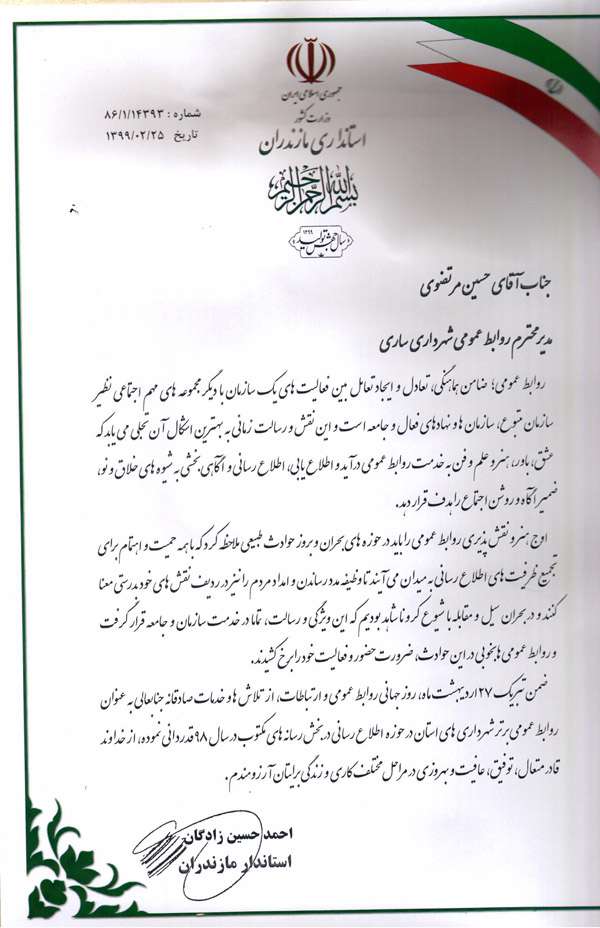 جمهوری اسلامی ایران
وزارت کشور
استانداری مازندران
شماره : ۸۶/۱/۱۴۳۹۳
تاریخ ۱۳۹۹/۰۲/۲۵
بسم الله الرحمن الرحیم
«سال جهش تولید» ۱۳۹۹
جناب آقای حسین مرتضوی
مدیر محترم روابط عمومی شهرداری ساری
روابط عمومی؛ ضامن هماهنگی، تعادل و ایجاد تعامل بین فعالیت های یک سازمان با دیگر مجموعه های مهم اجتماعی نظیر
سازمان متبوع، سازمان ها و نهادهای فعال و جامعه است و این نقش و رسالت زمانی به بهترین اشکال آن تجلی می یابد که
عشق، باور، هنر و علم و فن به خدمت روابط عمومی درآید و اطلاع یابی، اطلاع رسانی و آگاهی بخشی به شیوه های خلاق و نو،
ضمیر آگاه و روشن اجتماع را هدف قرار دهد.
اوج هنر و نقش پذیری روابط عمومی را باید در حوزه های بحران و بروز حوادث طبیعی ملاحظه کرد که با همه حمیت و اهتمام برای
تجمیع ظرفیت های اطلاع رسانی به میدان می آیند تا وظیفه مدد رساندن و امداد مردم را نیز در ردیف نقش های خود بدرستی معنا
کنند و در بحران سیل و مقابله با شیوع کرونا شاهد بودیم که این ویژگی و رسالت، تماما در خدمت سازمان و جامعه قرار گرفت
و روابط عمومی ها بخوبی در این حوادث، ضرورت حضور و فعالیت خود را برخ کشیدند.
ضمن تبریک ۲۷ اردیبهشت ماه، روز جهانی روابط عمومی و ارتباطات، از تلاش ها و خدمات صادقانه جنابعالی به عنوان
روابط عمومی برتر شهرداری های استان در حوزه اطلاع رسانی در بخش رسانه های مکتوب در سال ۹۸ قدردانی نموده، از خداوند
قادر متعال، توفیق، عافیت و بهروزی در مراحل مختلف کاری و زندگی برایتان آرزومندم.
احمد حسین زادگان
استاندار مازندران